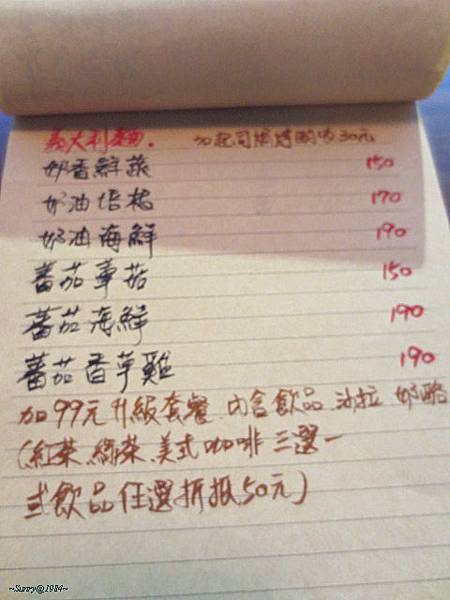 義大利麵. 加起司焗烤酌收30元
奶香鮮蔬 150
奶油培根 170
奶油海鮮 190
蕃茄蕈菇 150
蕃茄海鮮 190
蕃茄香草雞 190
加99元升級套餐 內含飲品、沙拉、奶酪
(紅茶、綠茶、美式咖啡 三選一
或飲品任選折抵50元)
~Sunny@1984~